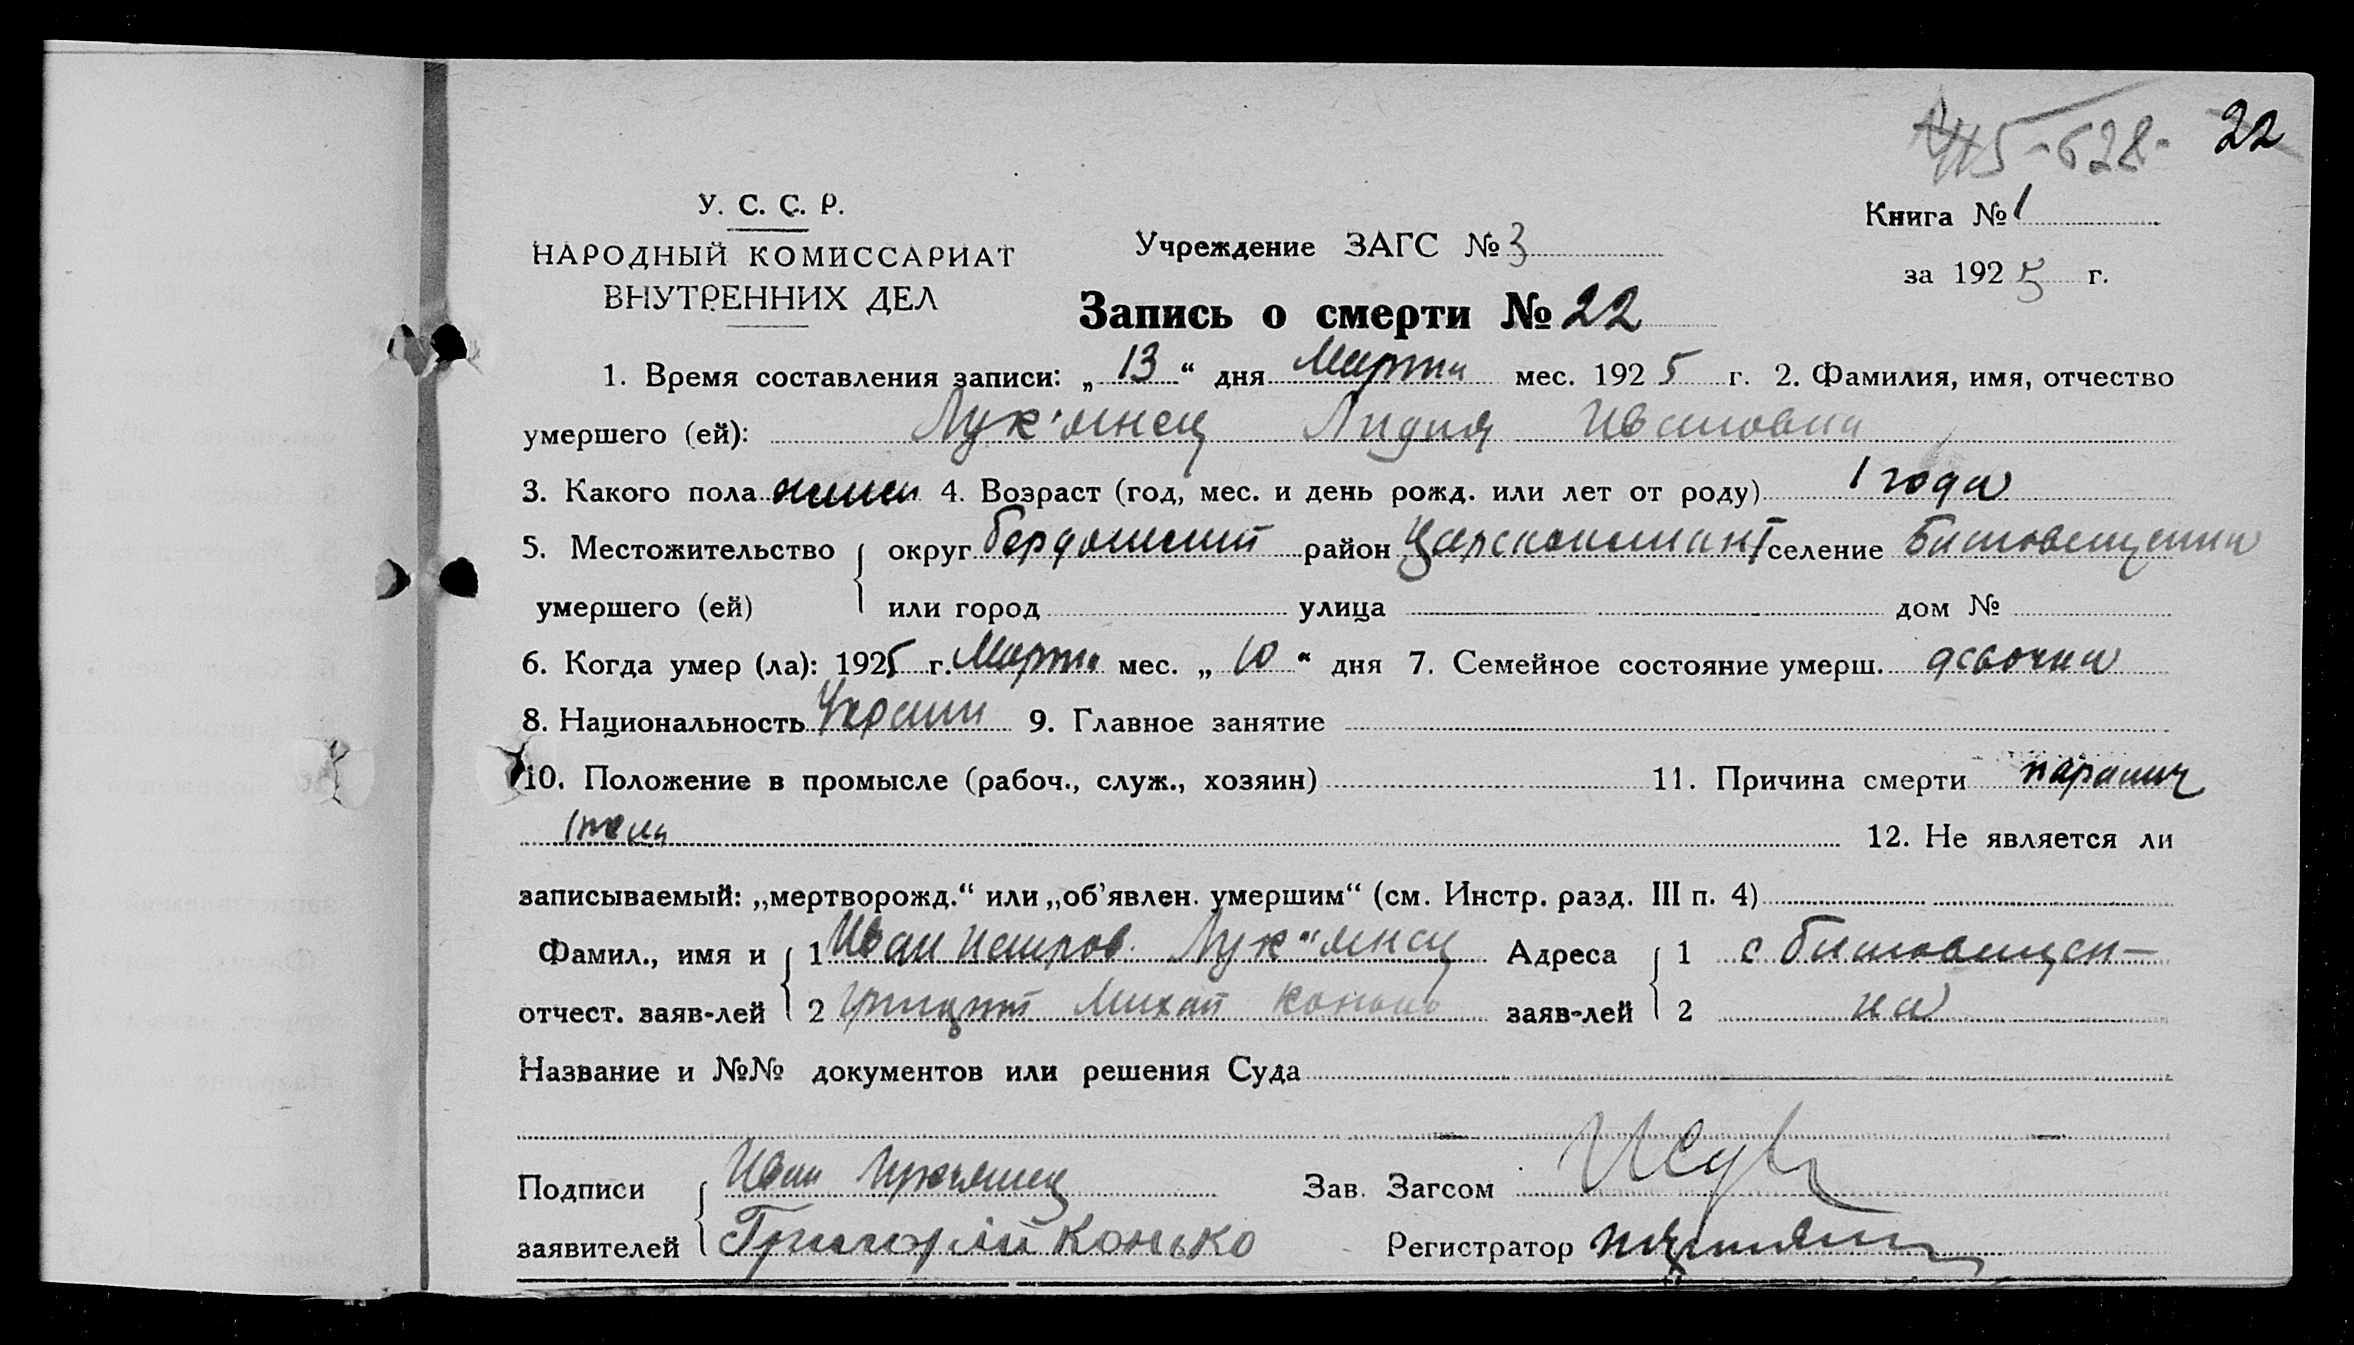 22
У. С. С. Р.
НАРОДНЫЙ КОМИССАРИАТ
ВНУТРЕННИХ ДЕЛ
Учреждение ЗАГС № 3
Книга № 1
за 1925 г.
Запись о смерти № 22
1. Время составления записи: „13“ дня Марта мес. 1925 г. 2. Фамилия, имя, отчество
умершего (ей): Лук'янец Лидия Ивановна
3. Какого пола 4. Возраст (год, мес. и день рожд. или лет от роду) 1 года
5. Местожительство округ район селение
умершего (ей) или город улица дом №
6. Когда умер (ла): 1925 г. Марта мес. „10“ дня 7. Семейное состояние умерш. девочка
8. Национальность Украин 9. Главное занятие
10. Положение в промысле (рабоч., служ., хозяин) 11. Причина смерти паралич
тела 12. Не является ли
записываемый: „мертворожд.“ или „об'явлен. умершим“ (см. Инстр. разд. III п. 4)
Фамил., имя и 1 Иван Петров. Лук"янец Адреса 1 с
отчест. заяв-лей 2 Михай Конько заяв-лей 2 на
Название и №№ документов или решения Суда
Подписи Иван Зав. Загсом
заявителей Григорій Конько Регистратор